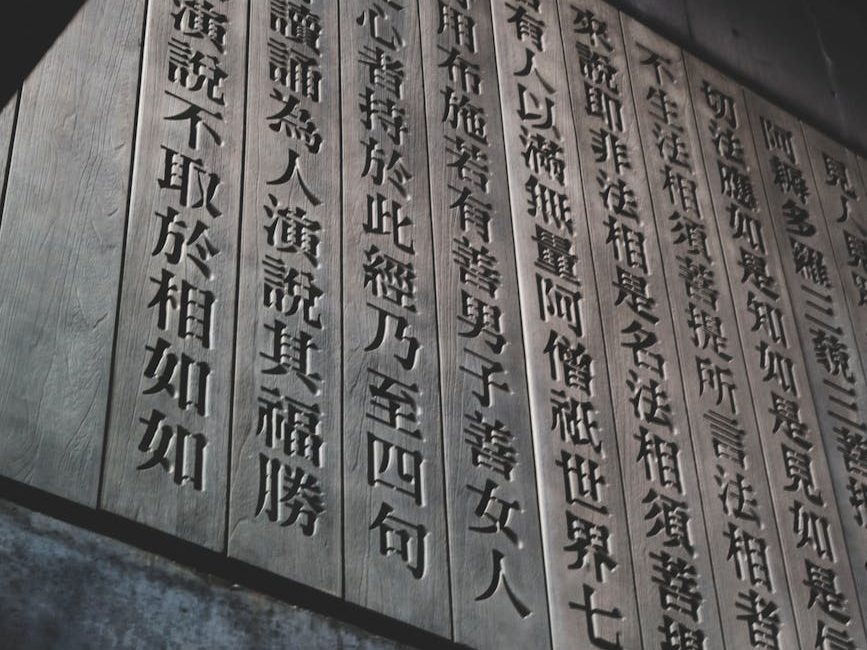 見人見
阿耨多羅三藐三菩
切法應如是知如是見如是信
不生法相須菩提所言法相者
來說即非法相是名法相須菩提
有人以滿無量阿僧祇世界七
用布施若有善男子善女人
心者持於此經乃至四句
讀誦為人演說其福勝
演說不取於相如如